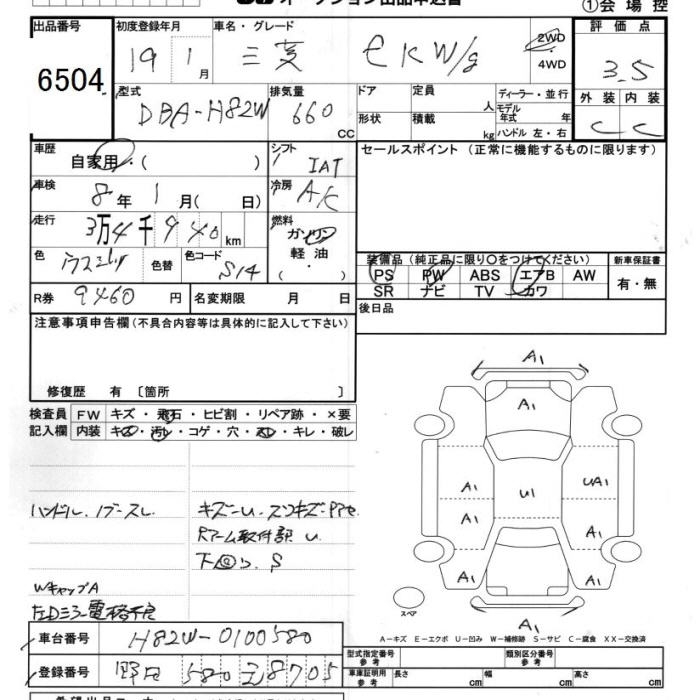 オークション出品申込書
①会場控
出品番号 初度登録年月 車名・グレード 評価点
6504 19 1月 三菱 eKW/g 2WD 3.5
4WD
外装 内装
C C
型式 排気量 ドア 定員 人 ディーラー・並行
DBA-H82W 660 cc モデル年式 年
形状 積載 kg ハンドル 左・右
車歴 シフト セールスポイント (正常に機能するものに限ります)
自家用・( ) IAT
車検 8年 1月( 日) 冷房 AC
走行 3万4千940km 燃料
ガソリン
軽油
( ・ )
色 色替 色コード S14
装備品(純正品に限り○をつけてください) 新車保証書
PS PW ABS エアB AW 有・無
SR ナビ TV カワ
R券 9460円 名変期限 月 日
後日品
注意事項申告欄(不具合内容等は具体的に記入して下さい)
修復歴 有 〔箇所 〕
検査員 FW キズ・飛石・ヒビ割・リペア跡・×要
記入欄 内装 キズ・汚レ・コゲ・穴・スレ・キレ・破レ
ハンドル
キズ-U
取付部 U
下回り S
WキャップA
ミラー電格不良
A1
A1
A1 U1 UA1
A1 A1
A1 A1
A1
スペア
A-キズ E-エクボ U-凹み W-補修跡 S-サビ C-腐食 XX-交換済
車台番号 H82W-0100580
登録番号 野田 580 る 8705
型式指定番号 参考 類別区分番号 参考
車庫証明用 参考 長さ cm 幅 cm 高さ cm